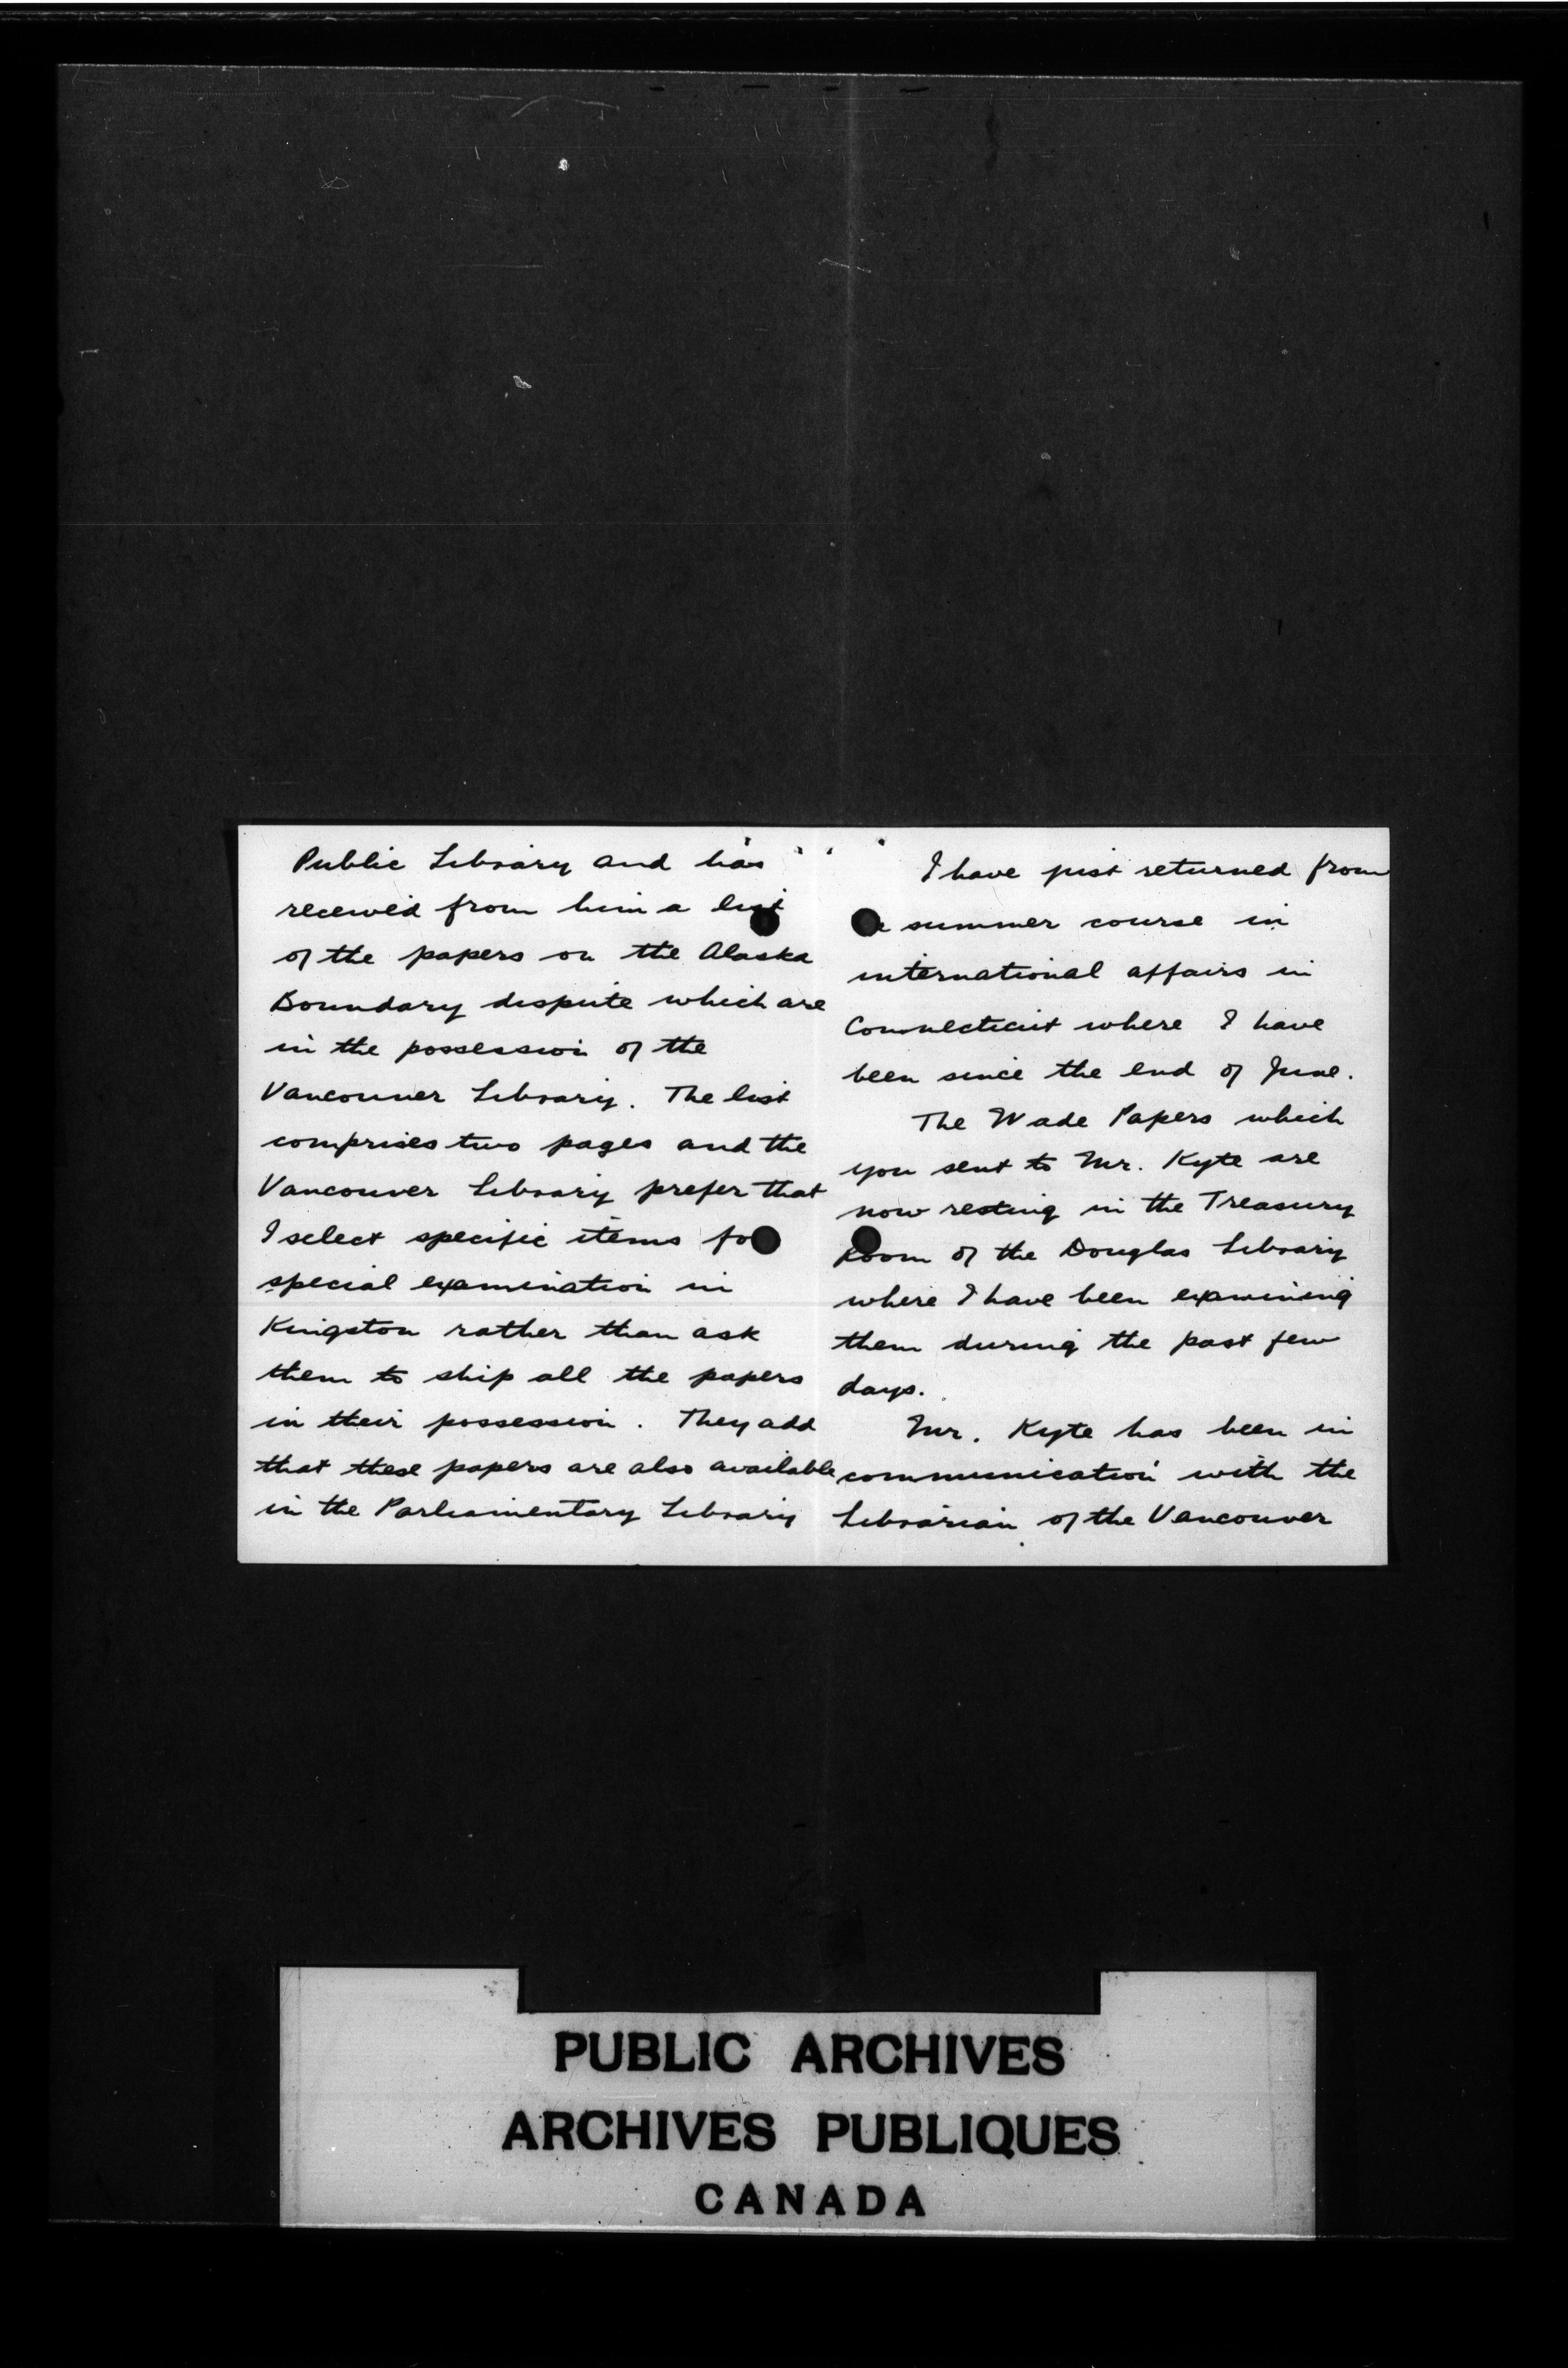 I have just returned from
a summer course in
international affairs in
Connecticut where I have
been since the end of June.
The Wade Papers which
you sent to Mr. Kyte are
now resting in the Treasury
Room of the Douglas Library
where I have been examining
them during the past few
days.
Mr. Kyte has been in
communication with the
Librarian of the Vancouver
Public Library and has
received from him a list
of the papers on the Alaska
Boundary dispute which are
in the possession of the
Vancouver Library. The list
comprises two pages and the
Vancouver Library prefer that
I select specific items for
special examination in
Kingston rather than ask
them to ship all the papers
in their possession. They add
that these papers are also available
in the Parliamentary Library
PUBLIC ARCHIVES
ARCHIVES PUBLIQUES
CANADA